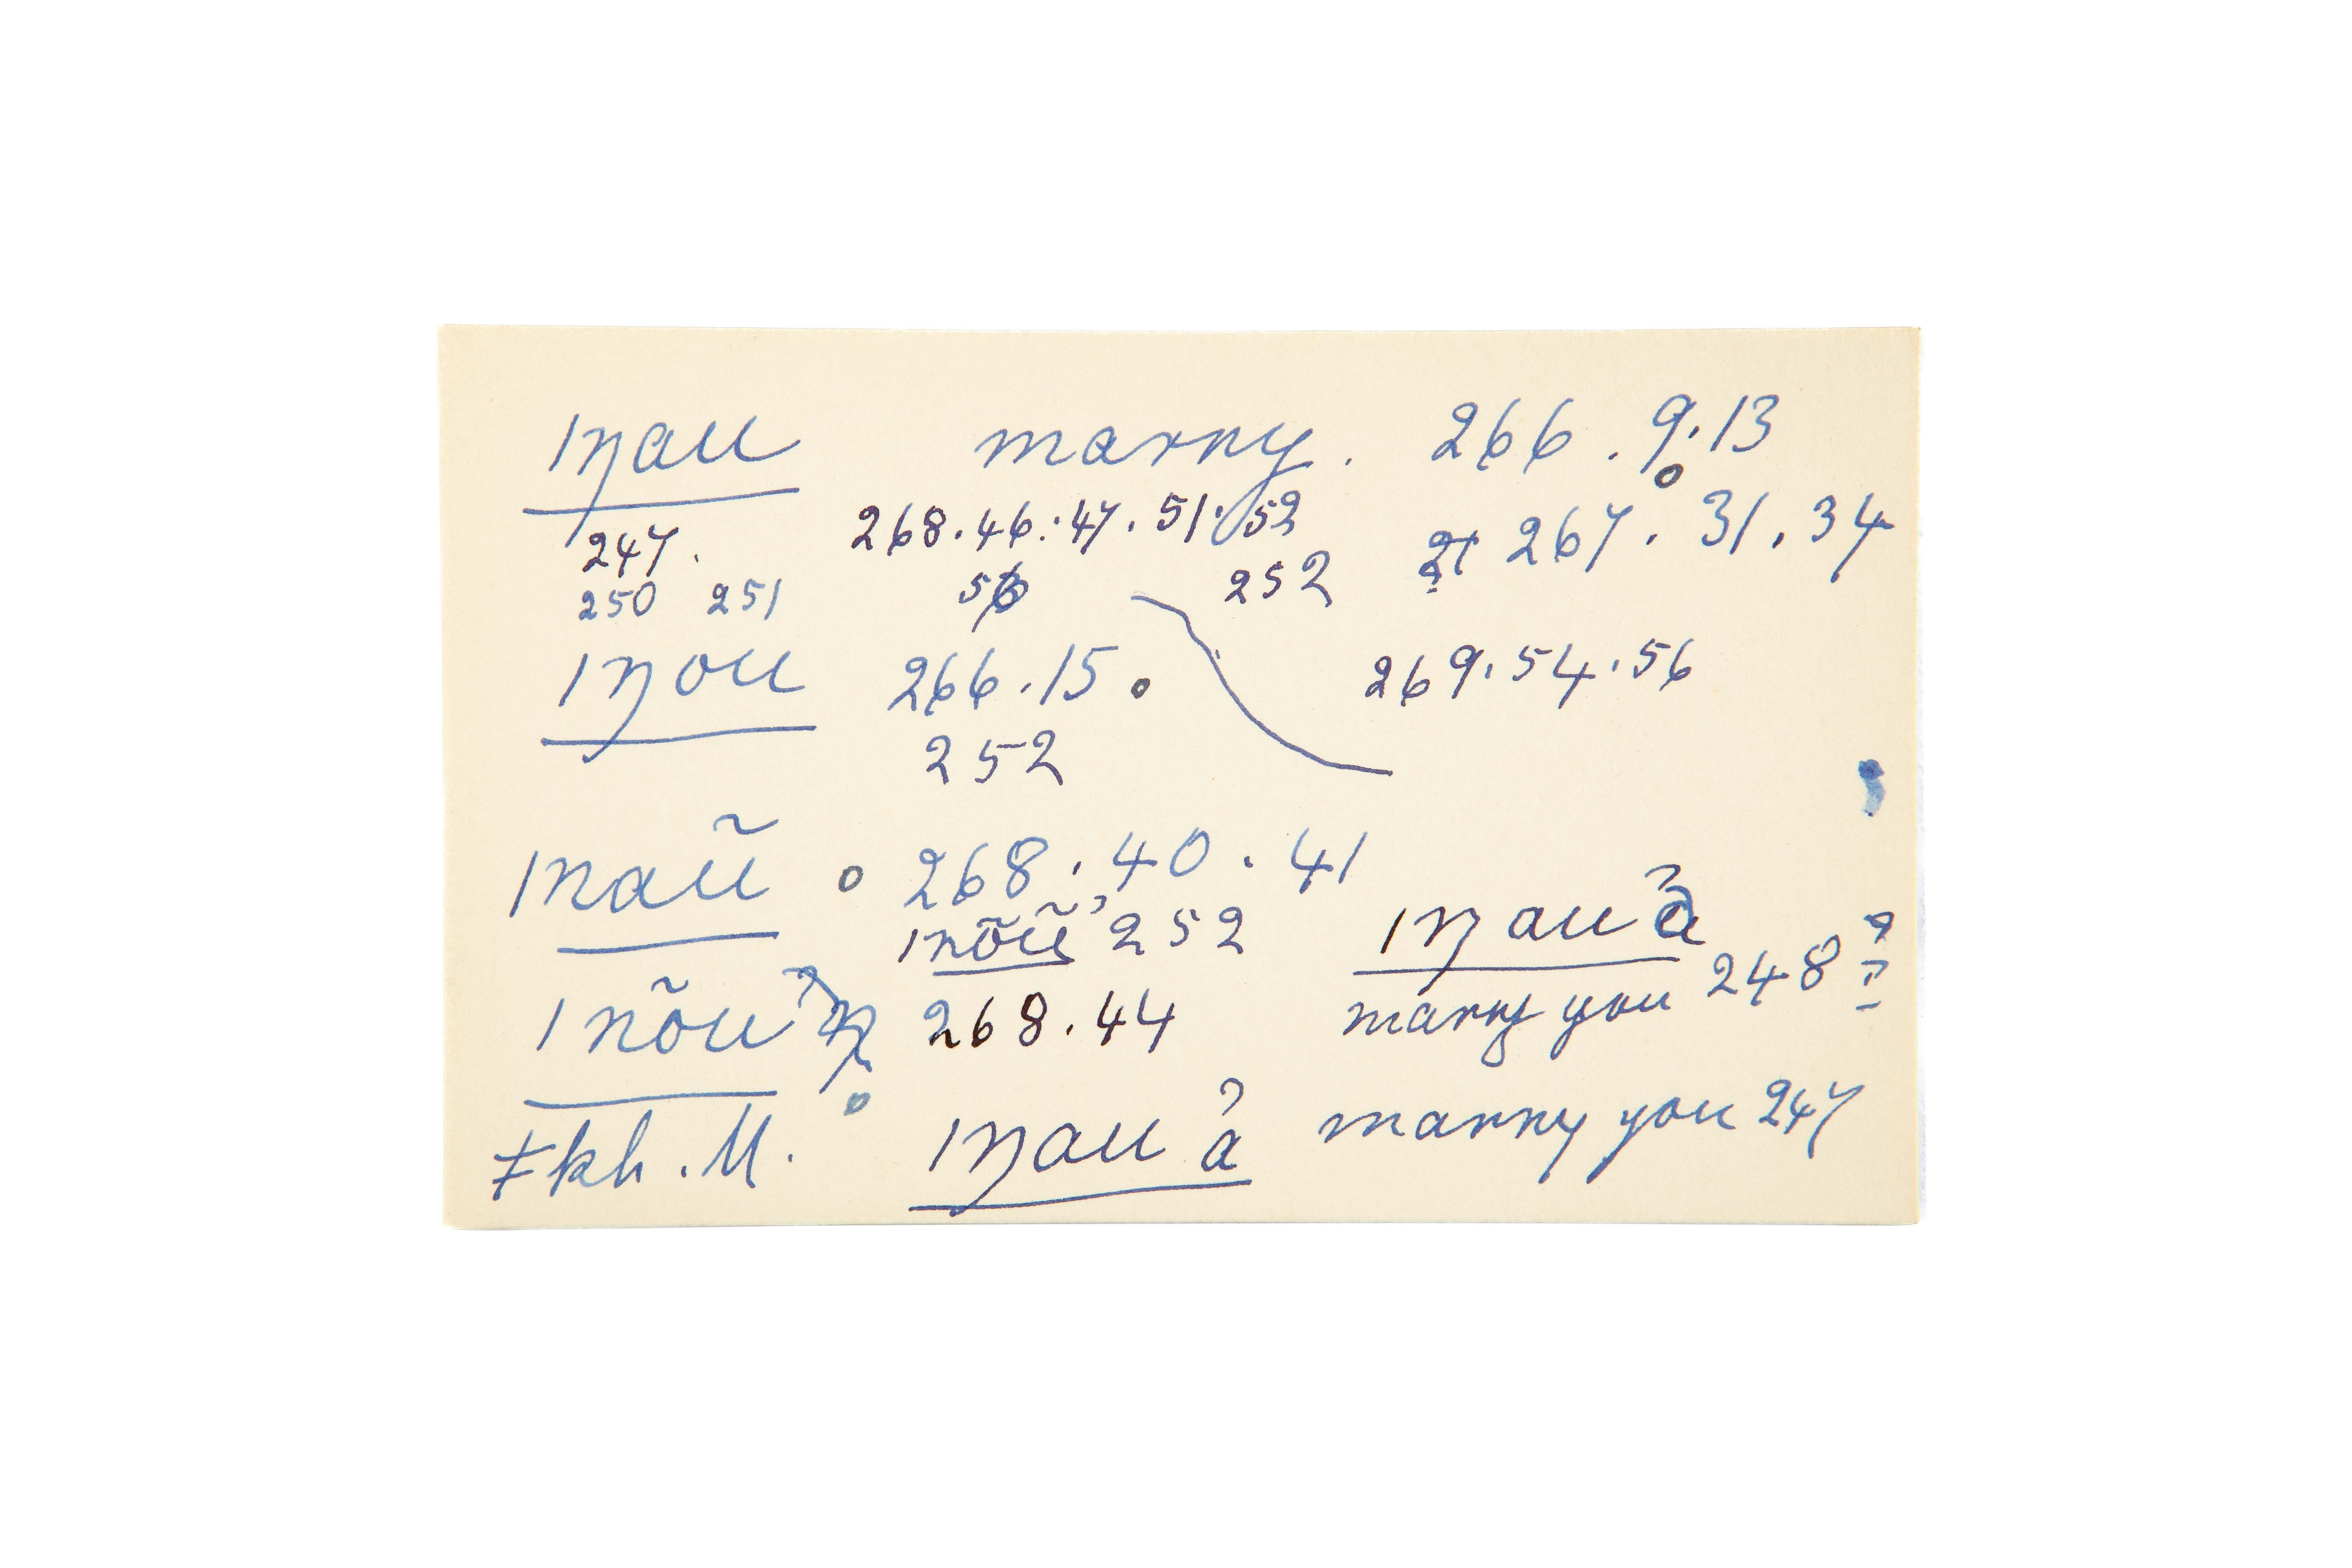 /ŋau marry. 266. 9.13
247. 268.46.47.51.52 267. 31. 34
250 251 56 252
/ŋou 266.15. 269.54.56
252
/nau͂ 268.40.41
/nõu͂ʼ 252 /ŋau ȧ̉ 248 ?
/nõu 268.44 marry you
ǂkh. M. /ŋau ả marry you 247